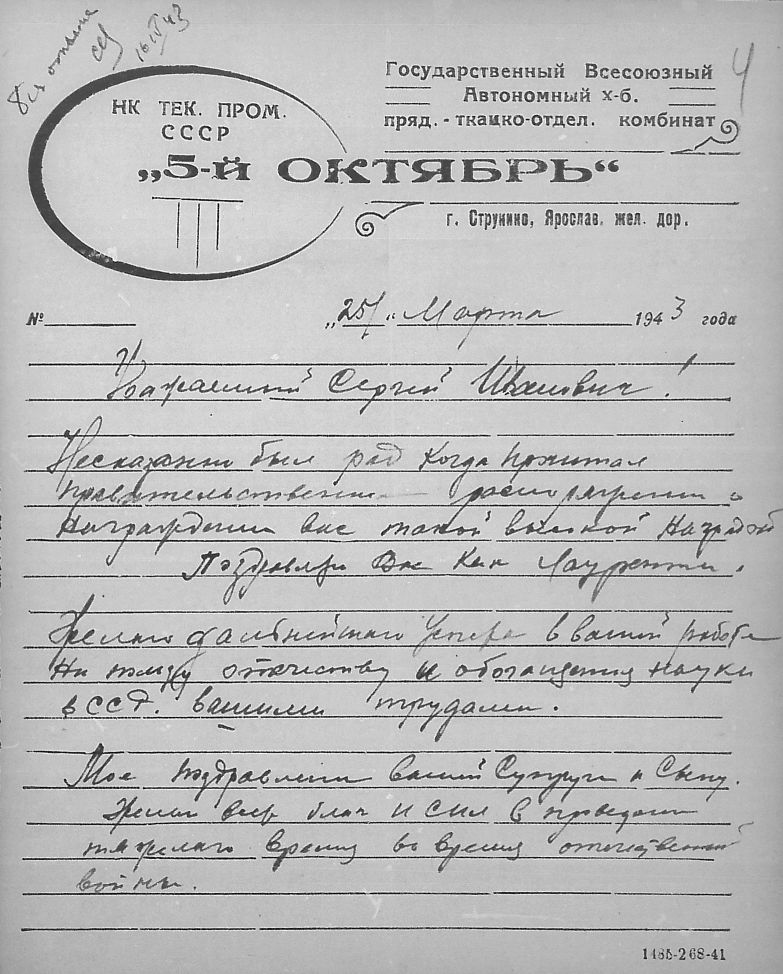 16/IV 43
4
Государственный Всесоюзный
Автономный х-б.
пряд.-ткацко-отдел. комбинат
НК ТЕК. ПРОМ.
СССР
„5-й ОКТЯБРЬ“
г. Струнино, Ярослав. жел. дор.
№ „25/“ Марта 1943 года
Уважаемый Сергей Иванович!
Несказанно был рад когда прочитал
правительственное распоряжении о
награждении вас такой высокой наградой
Поздравляю Вас как Лауреата.
Желаю дальнейшего успеха в вашей работе
на пользу отечеству и обогащения науки
в СССР. вашими трудами.
Мое поздравления вашей Супруги и Сыну.
Желаю всех благ и сил в проведении
тяжелаго время во время отечественной
войны.
1485-268-41